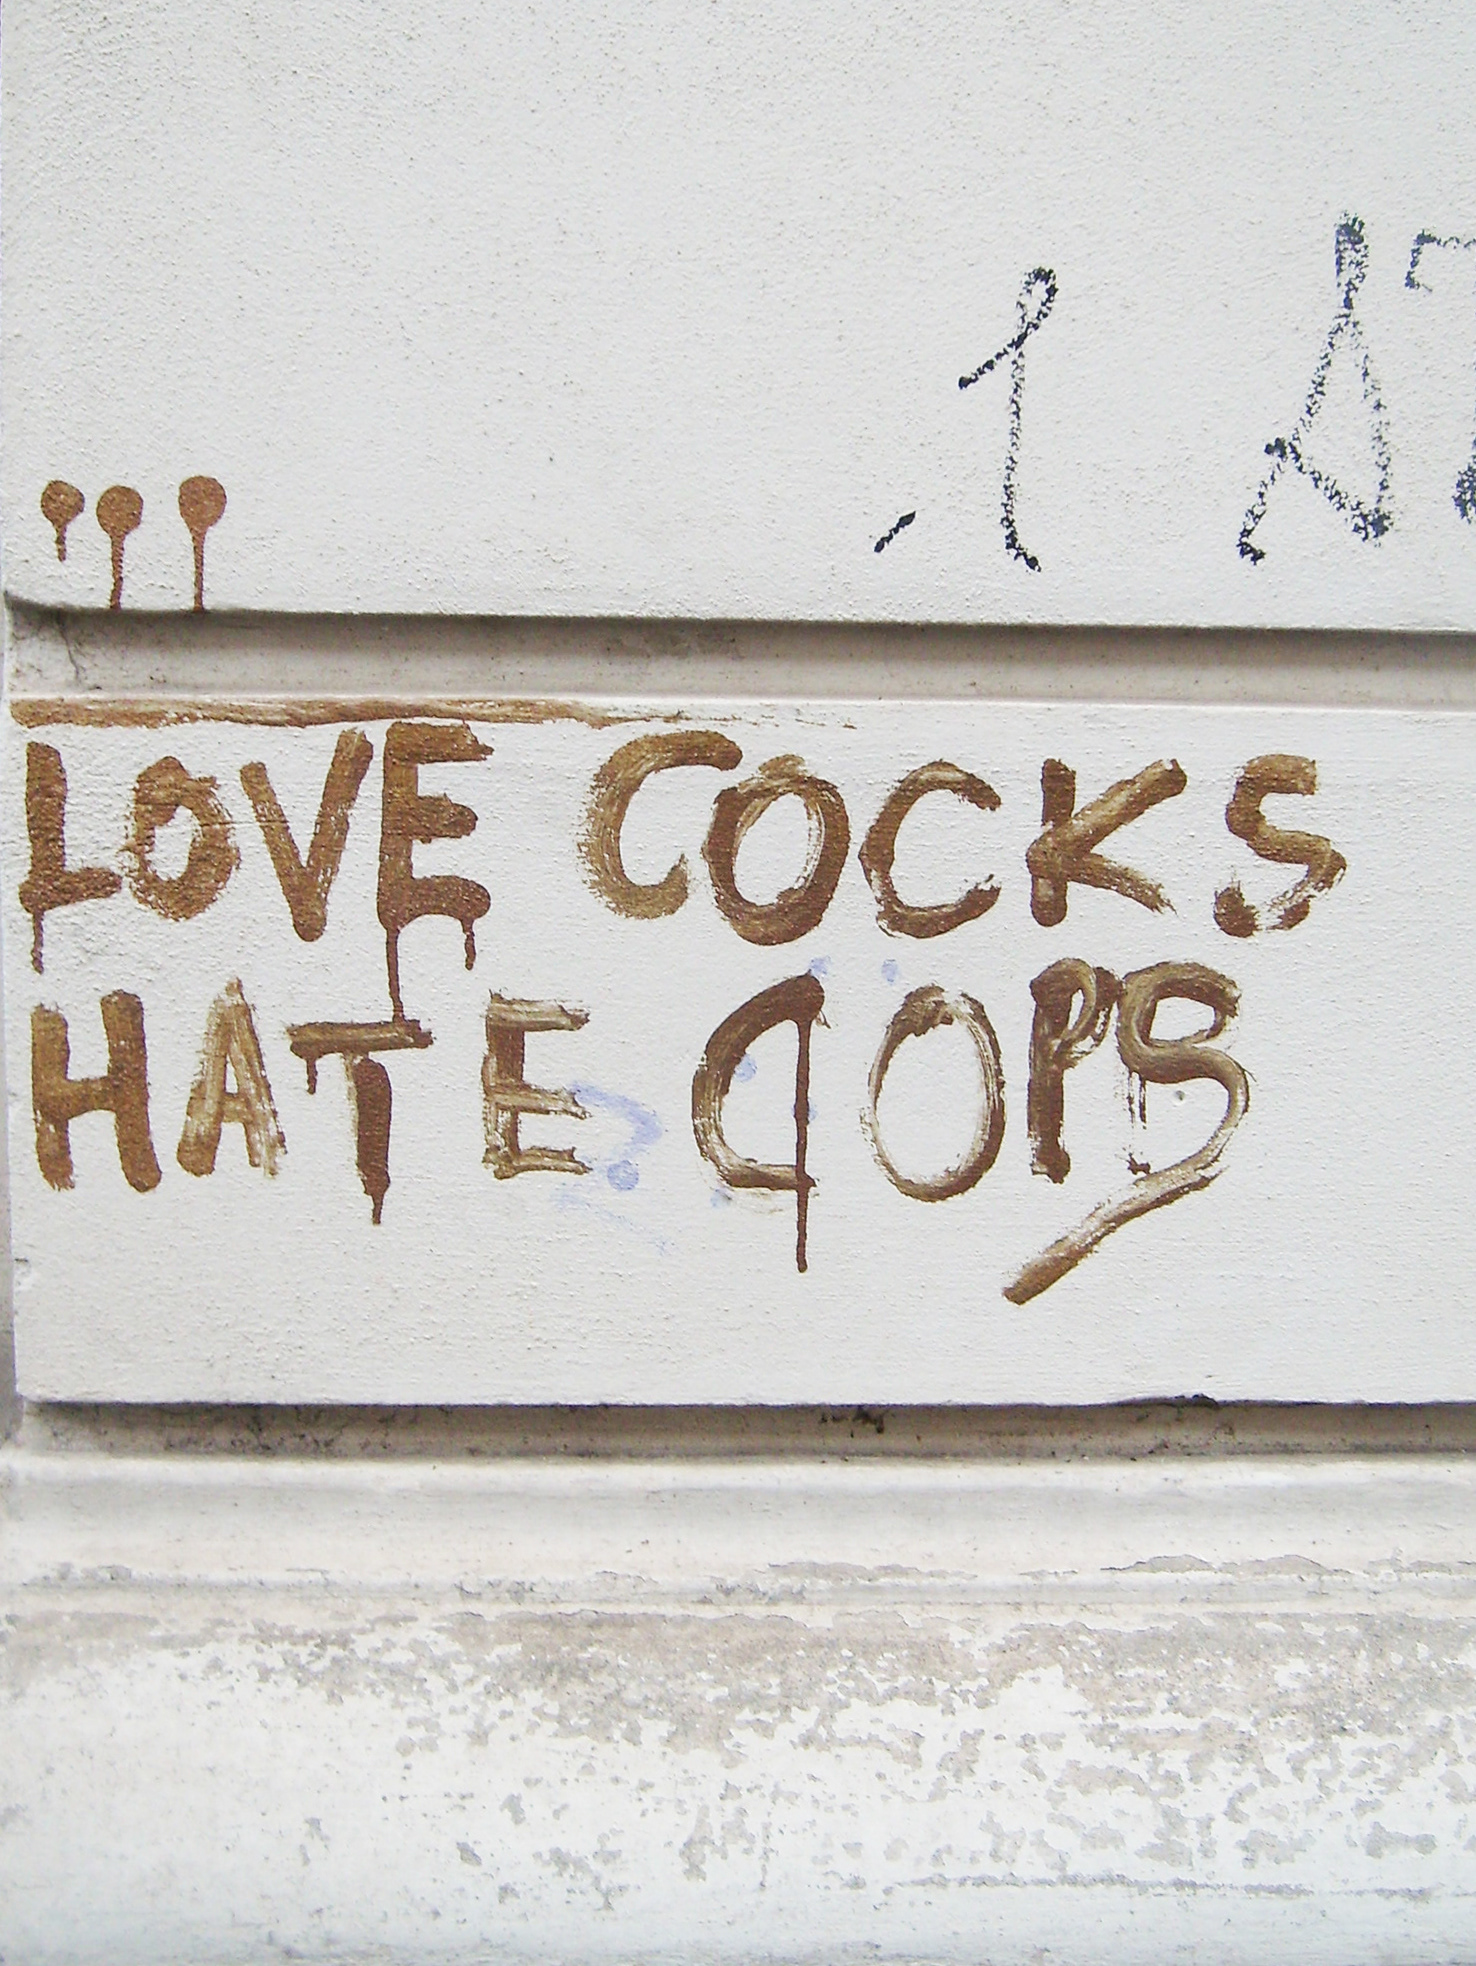 LOVE COCKS
HATE COPS